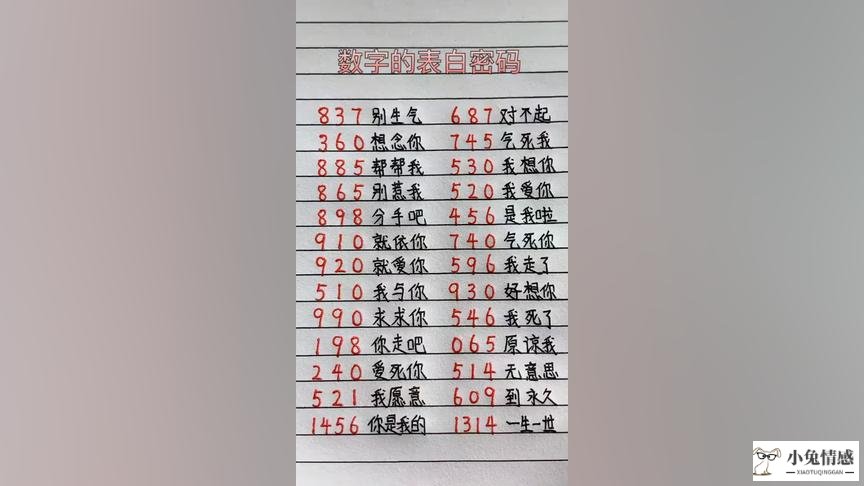 数字的表白密码
837 别生气 687 对不起
360 想念你 745 气死我
885 帮帮我 530 我想你
865 别惹我 520 我爱你
898 分手吧 456 是我啦
910 就依你 740 气死你
920 就爱你 596 我走了
510 我与你 930 好想你
990 求求你 546 我死了
198 你走吧 065 原谅我
240 爱死你 514 无意思
521 我愿意 609 到永久
1456 你是我的 1314 一生一世
小兔情感
XIAOTUQINGGAN